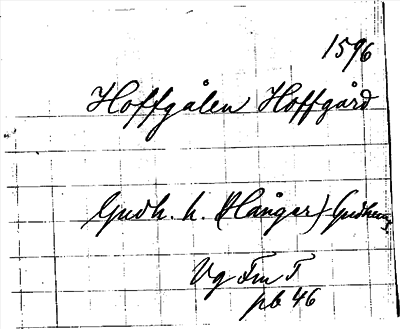 1596
Hoffgålen Hoffgård
Gudh. h. (Hånger) Gudhems
Vg Fm T
pb 46